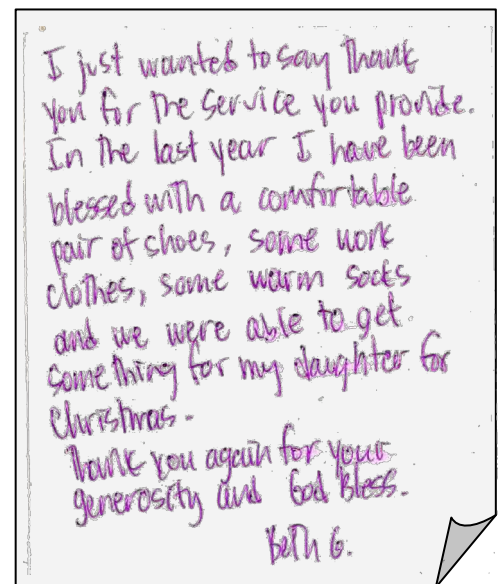 I just wanted to say Thank
you for the service you provide.
In the last year I have been
blessed with a comfortable
pair of shoes, some work
clothes, some warm socks
and we were able to get
something for my daughter for
Christmas.
Thank you again for your
generosity and God Bless.
Beth G.